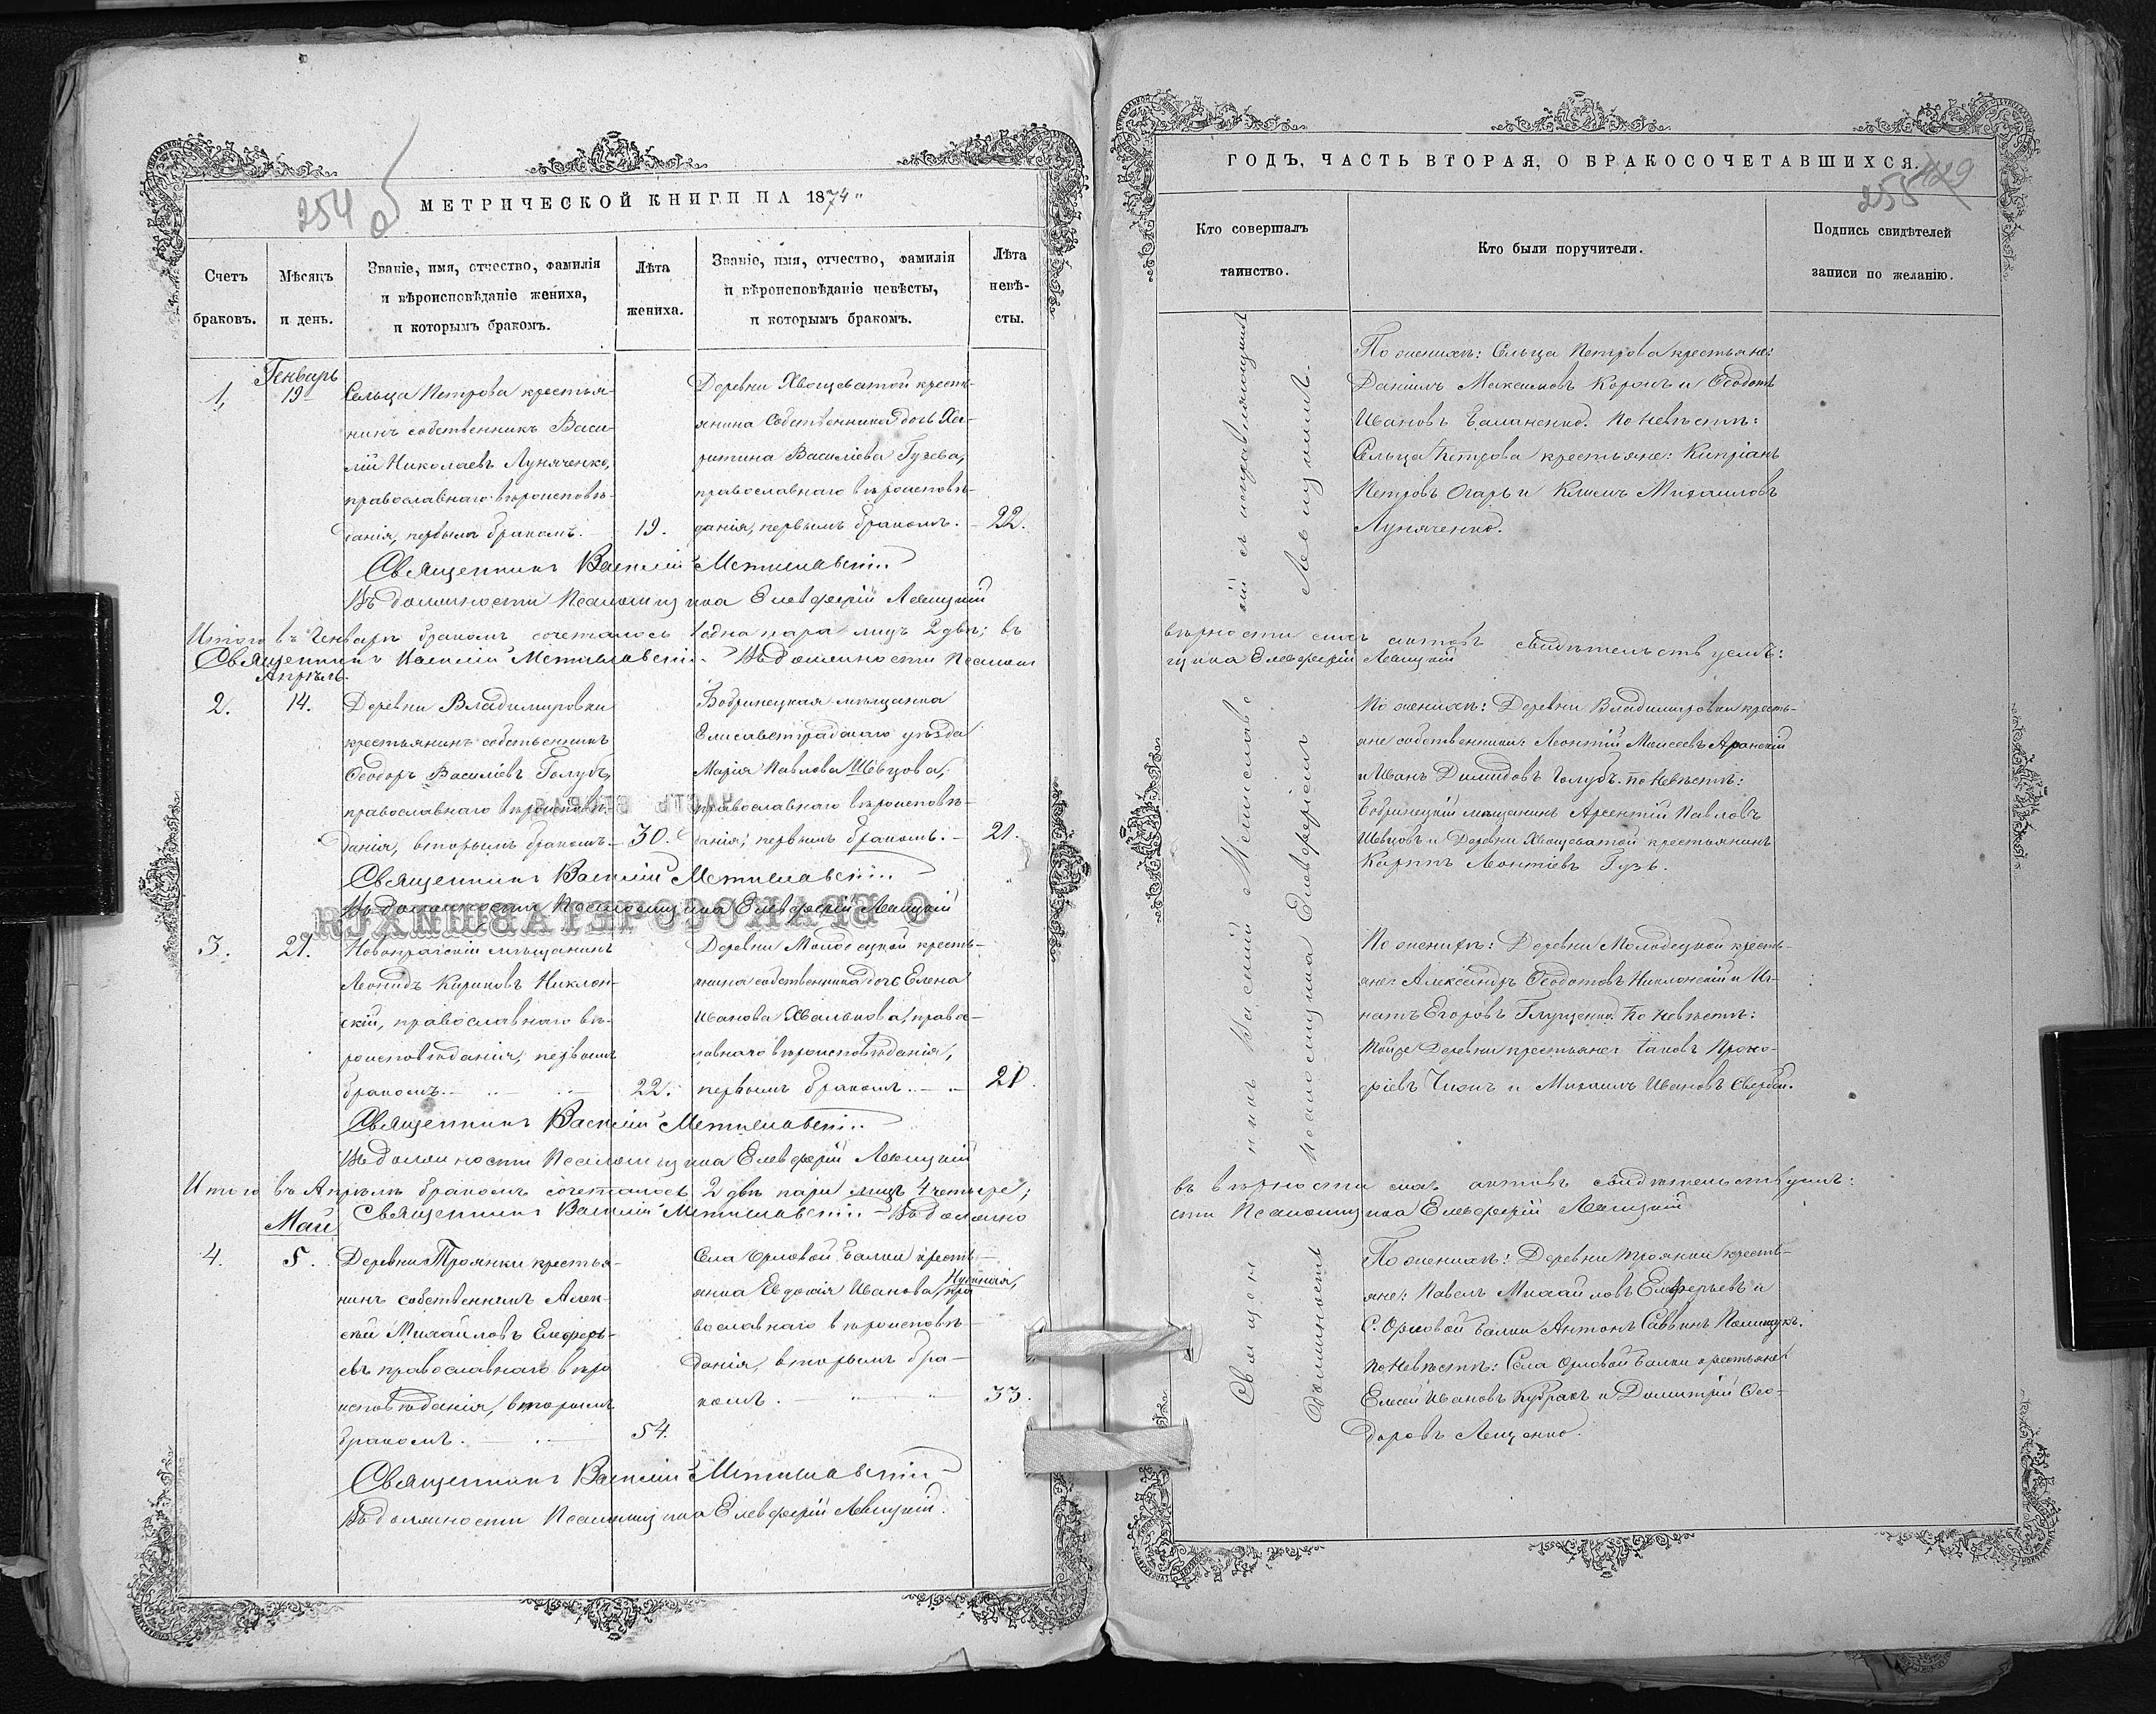 254 об
МЕТРИЧЕСКОЙ КНИГИ НА 1874"
Счетъ
браковъ.
Мѣсяцъ
и день.
Званіе, имя, отчество, фамилія
и вѣроисповѣданіе жениха,
и которымъ бракомъ.
Лѣта
жениха.
Званіе, имя, отчество, фамилія
и вѣроисповѣданіе невѣсты,
и которымъ бракомъ.
Лѣта
невѣ-
сты.
Генварь
1,
19
Сельца Петрова крестья-
нинъ собственникъ Васи-
лій Николаевъ Луняченко,
православнаго вѣроисповѣ-
данія, первымъ бракомъ.
19.
Деревни Хвощеватой кресть-
янина собственника дочь Ха-
ритина Василіева Гузева,
православнаго вѣроисповѣ-
данія, первымъ бракомъ.
22.
Священникъ Василій Мстиславскій
Въ должности Псаломщика Елевферій Левицкій
Итого въ Генварѣ бракомъ сочеталось 1 одна пара лицъ 2 двѣ; въ
Священникъ Василій Мстиславскій. Въ должности Псалом
Апрѣль.
2.
14.
Деревни Владимировки
крестьянинъ собственникъ
Ѳеодоръ Василіевъ Голубъ,
православнаго вѣроисповѣ-
данія, вторымъ бракомъ.
30.
Бобринецкая мѣщанка
Елисаветградскаго уѣзда
Марія Павлова Шевцова,
православнаго вѣроисповѣ-
данія, первымъ бракомъ.
21.
Священникъ Василій Мстиславскій
Въ должности Псаломщика Елевферій Левицкій
3.
21.
Новопражскій мѣщанинъ
Леонидъ Кириковъ Никлон-
скій, православнаго вѣ-
роисповѣданія, первымъ
бракомъ.
22.
Деревни Молодецкой кресть-
янина собственника дочь Елена
Иванова Хвалькова, правос-
лавнаго вѣроисповѣданія,
первымъ бракомъ.
21.
Священникъ Василій Мстиславскій
Въ должности Псаломщика Елевферій Левицкій
Итого въ Апрѣлѣ бракомъ сочеталось 2 двѣ пары лицъ 4 четыре;
Священникъ Василій Мстиславскій Въ должно
Май
4.
5.
Деревни Троянки крестья-
нинъ собственникъ Алек-
сѣй Михайловъ Елеферь-
евъ православнаго вѣро
исповѣданія, вторымъ
бракомъ.
54.
Села Орловой Балки кресть-
янка Евдокія Иванова пра
вославнаго вѣроисповѣ-
данія, вторымъ бра-
комъ.
33.
Священникъ Василій Мстиславскій
Въ должности Псаломщика Елевферій Левицкій.
ГОДЪ, ЧАСТЬ ВТОРАЯ, О БРАКОСОЧЕТАВШИХСЯ.
255
Кто совершалъ
таинство.
Кто были поручители.
Подпись свидѣтелей
записи по желанію.
Священникъ Василій Мстиславскій съ исправляющимъ
должность Псаломщика Елевферіемъ Левицкимъ.
По женихѣ: Сельца Петрова крестьяне:
Даніилъ Максимовъ и Ѳеодотъ
Ивановъ Баланенко. По невѣстѣ:
Сельца Петрова крестьяне: Кипріанъ
Петровъ Огарь и Климъ Михаиловъ
Луняченко.
вѣрности сихъ актовъ свидѣтельствуемъ:
щика Елевферій Левицкій
По женихѣ: Деревни Владимировки кресть-
яне собственники: Леонтій Моисеевъ
и Иванъ Димидовъ Голубъ. по невѣстѣ:
Бобринецкій мѣщанинъ Арсентій Павловъ
Шевцовъ и Деревни Хвощеватой крестьянинъ
Карпъ Леонтіевъ Гузь.
По женихѣ: Деревни Молодецкой кресть-
яне: Александръ Ѳеодотовъ Никлонскій и Иг-
натъ Егоровъ Глущенко. По невѣстѣ:
Тойже Деревни крестьяне: Іаковъ Проко-
фіевъ и Михаилъ Ивановъ
въ вѣрности сихъ актовъ свидѣтельствуемъ:
сти Псаломщика Елевферій Левицкій
По женихѣ: Деревни Троянки кресть-
яне: Павелъ Михайловъ Елеферьевъ и
С. Орловой Балки Антонъ Саввинъ Полищукъ.
по невѣстѣ: Села Орловой Балки крестьяне:
Елисей Ивановъ и Димитрій Ѳео-
доровъ Лещенко.